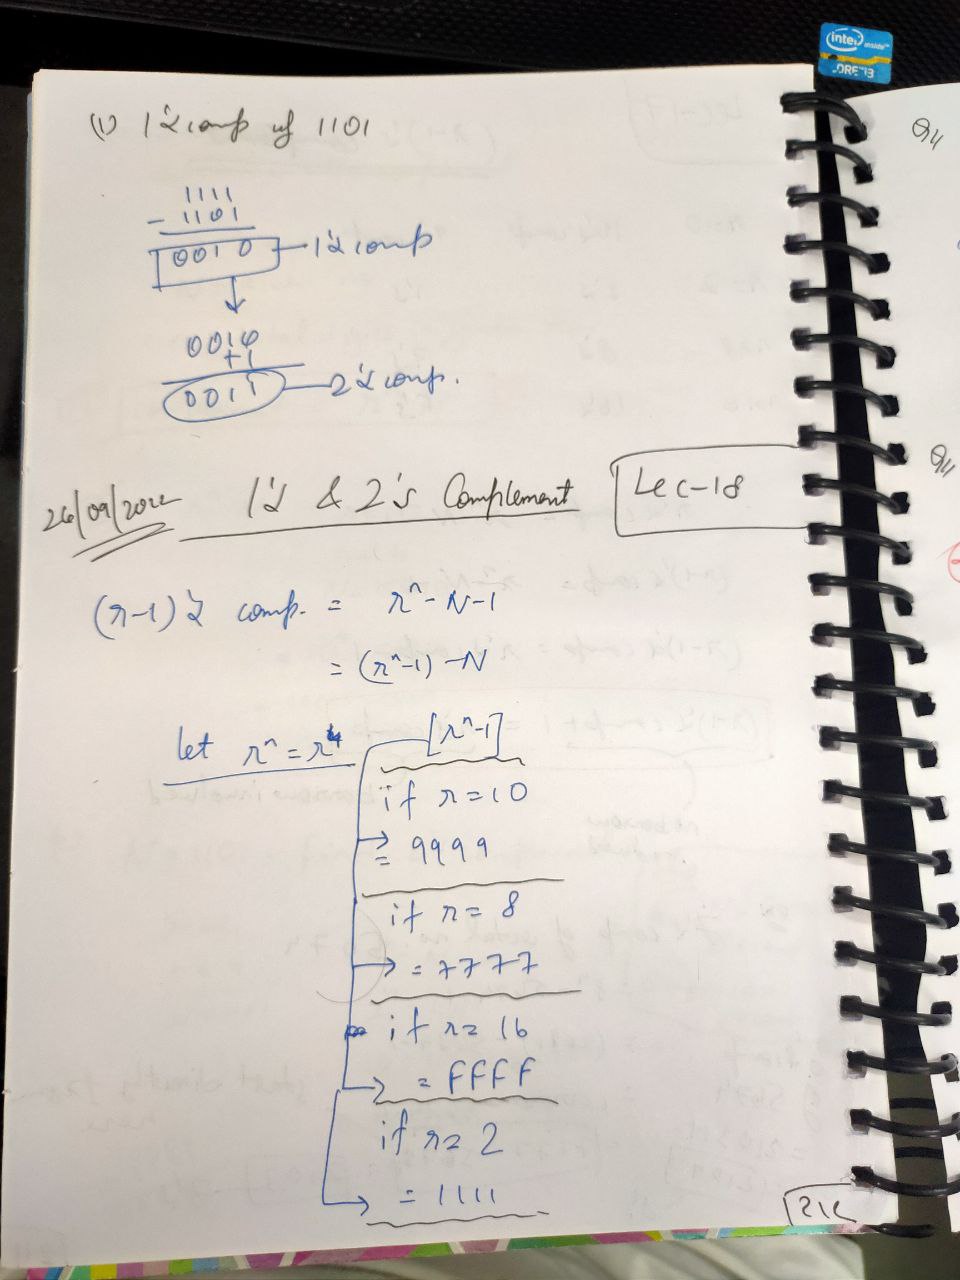 intel inside™
CORE i3
(1) 1's comp of 1101
1111
- 1101
0010 — 1's comp
0010
+1
0011 — 2's comp.
26/09/2022 1's & 2's Complement Lec-18
(r-1)'s comp. = rⁿ - N - 1
= (rⁿ-1) - N
let rⁿ = r⁴ [rⁿ-1]
if r=10
= 9999
if r= 8
= 7777
if r= 16
= FFFF
if r= 2
= 1111